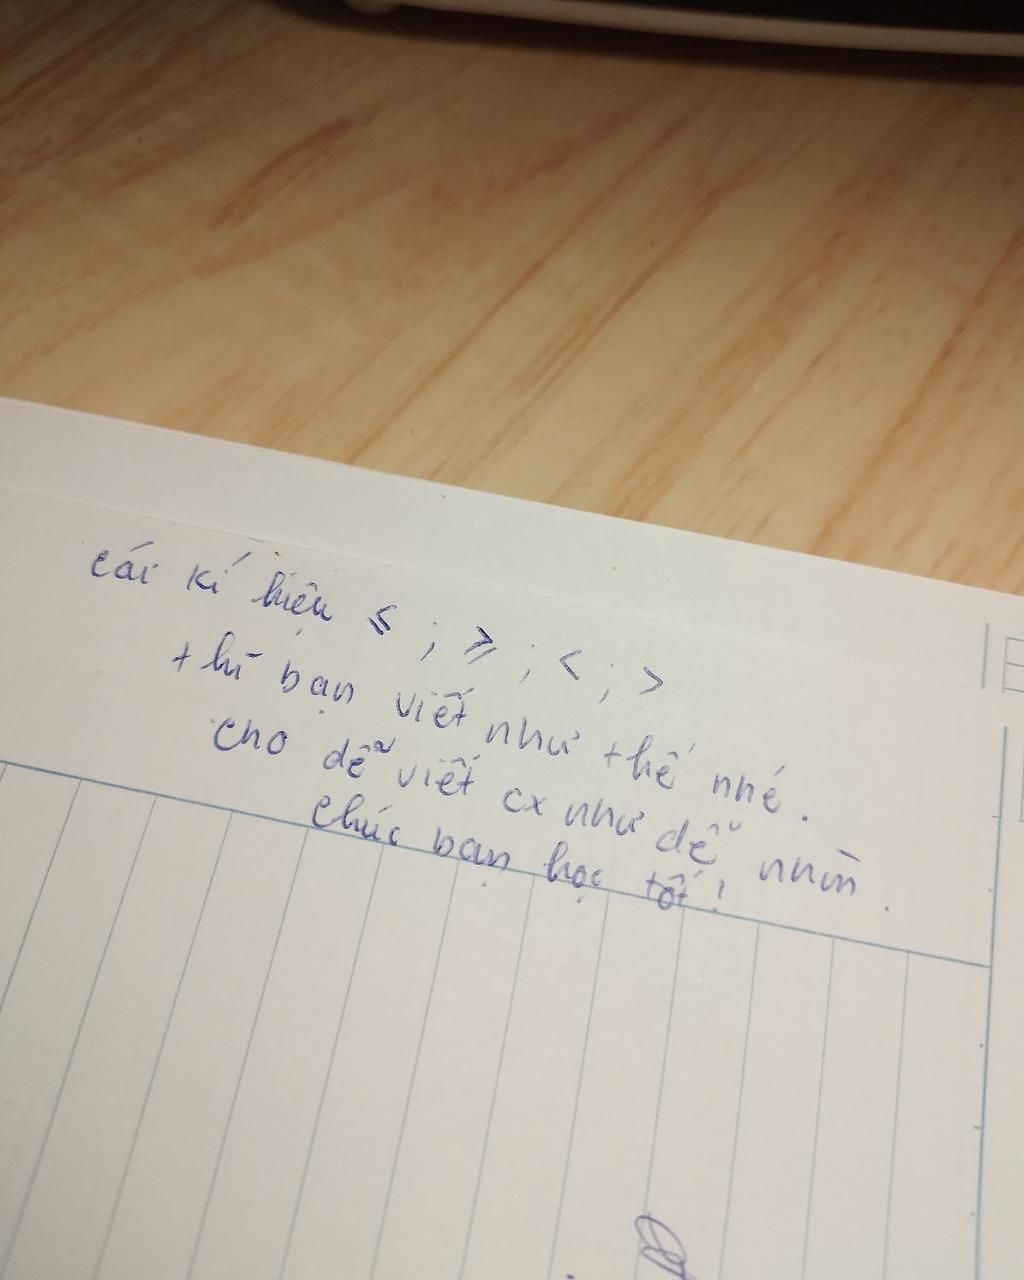 cái kí hiệu ⩽ ; ⩾ ; < ; >
thì bạn viết như thế nhé.
cho dễ viết cx như dễ nhìn.
chúc bạn học tốt!